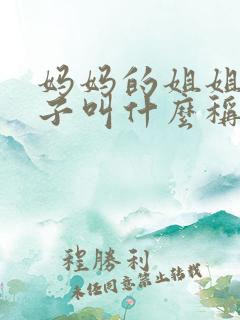 妈妈的姐姐
子叫什麼稱
程勝利
未经同意禁止转载